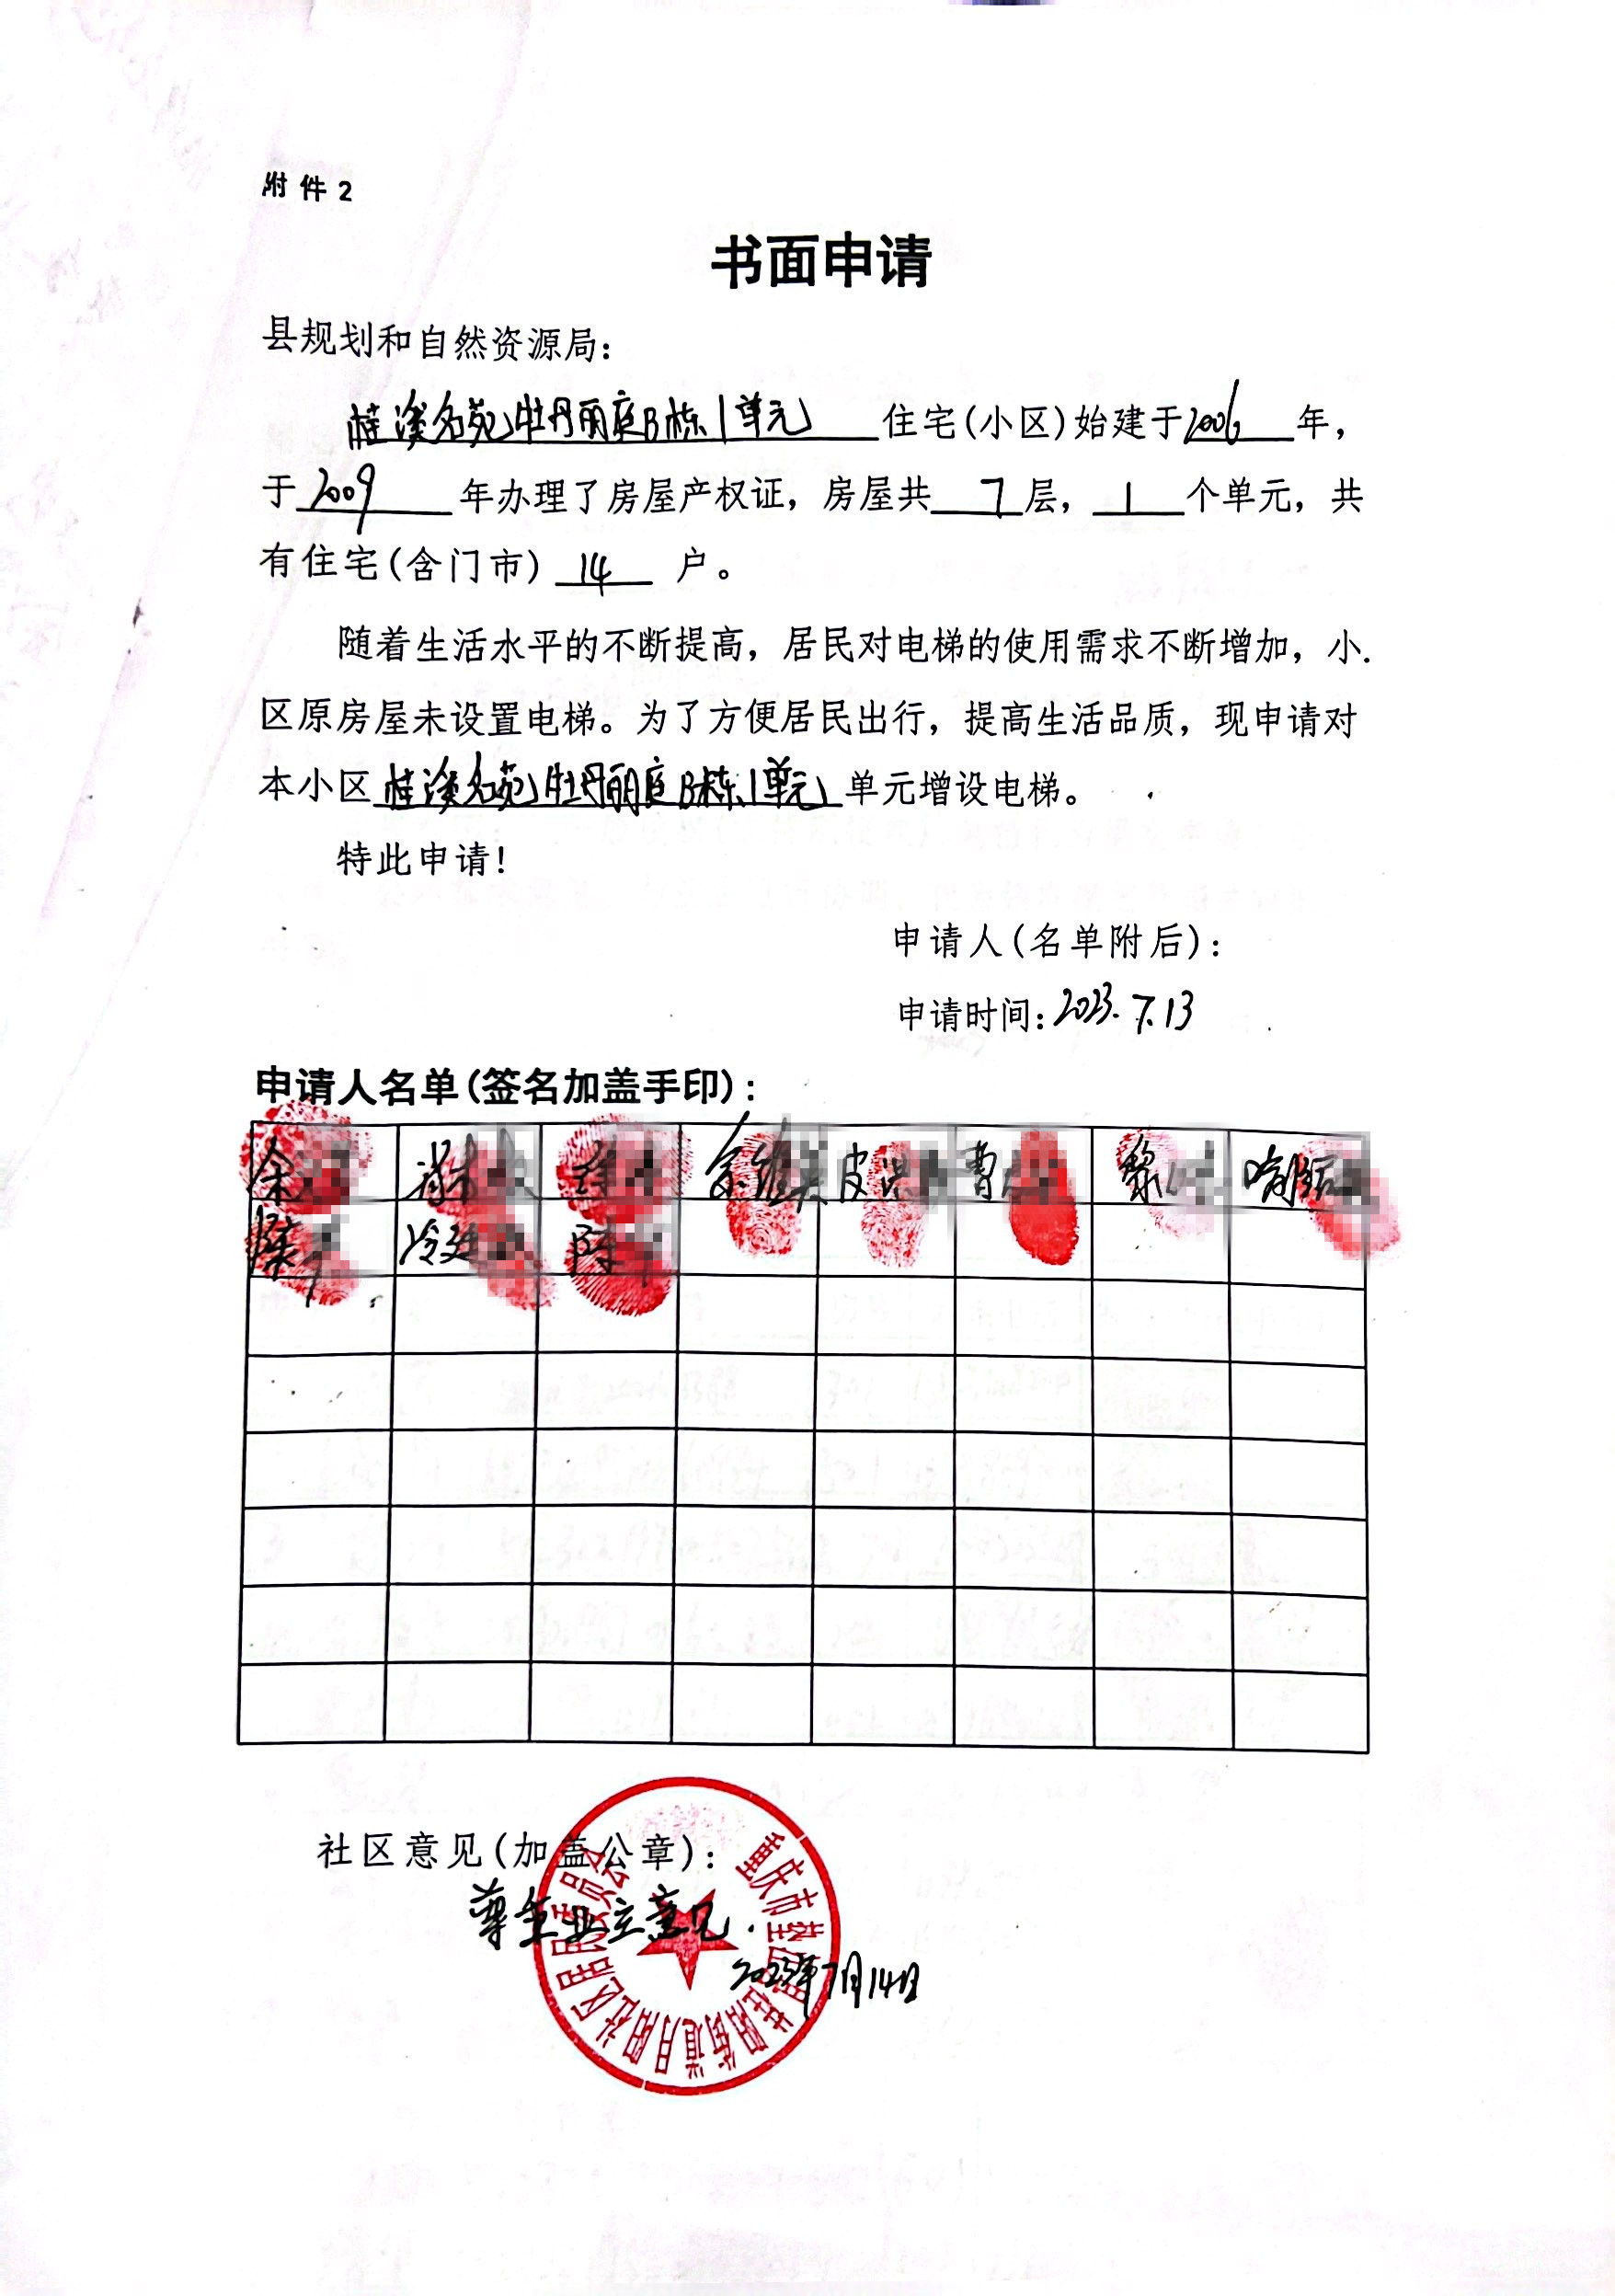 附件2
书面申请
县规划和自然资源局：
桂溪名苑牡丹丽庭B栋1单元 住宅(小区)始建于2006年，
于2009年办理了房屋产权证，房屋共7层，1个单元，共
有住宅(含门市)14户。
随着生活水平的不断提高，居民对电梯的使用需求不断增加，小
区原房屋未设置电梯。为了方便居民出行，提高生活品质，现申请对
本小区桂溪名苑牡丹丽庭B栋1单元单元增设电梯。
特此申请！
申请人(名单附后)：
申请时间：2023.7.13
申请人名单(签名加盖手印)：
余 余维 皮 曹 黎
陈 冷廷 陈
社区意见(加盖公章)：
尊重业主意见.
2023年7月14日
重庆市垫江县桂阳街道月阳社区居民委员会